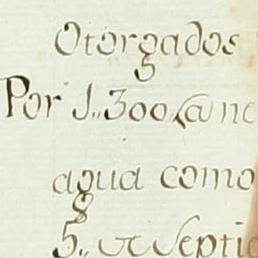 Otorgados
Por 1..300
agua como
5.. de Septi